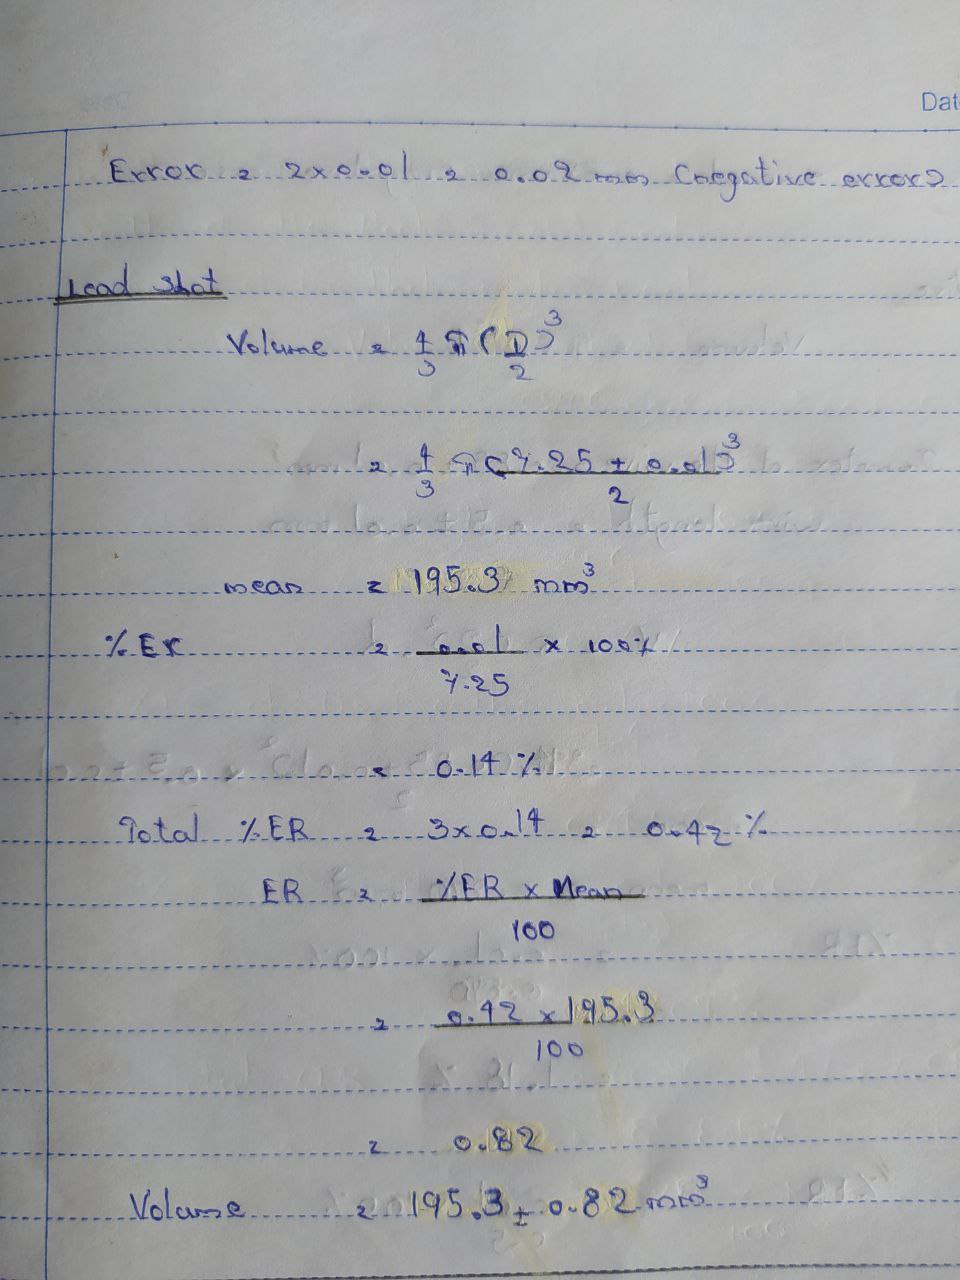 Dat
Error = 2x0.01 = 0.02 mm (negative error)
Lead Shot
Volume = 4/3 π (D/2)³
= 4/3 π (7.25 ± 0.01/2)³
mean = 195.3 mm³
% Er = 0.01/7.25 x 100%
= 0.14 %
Total % ER = 3x0.14 = 0.42 %
ER = %ER x Mean/100
= 0.42 x 195.3/100
= 0.82
Volume = 195.3 ± 0.82 mm³